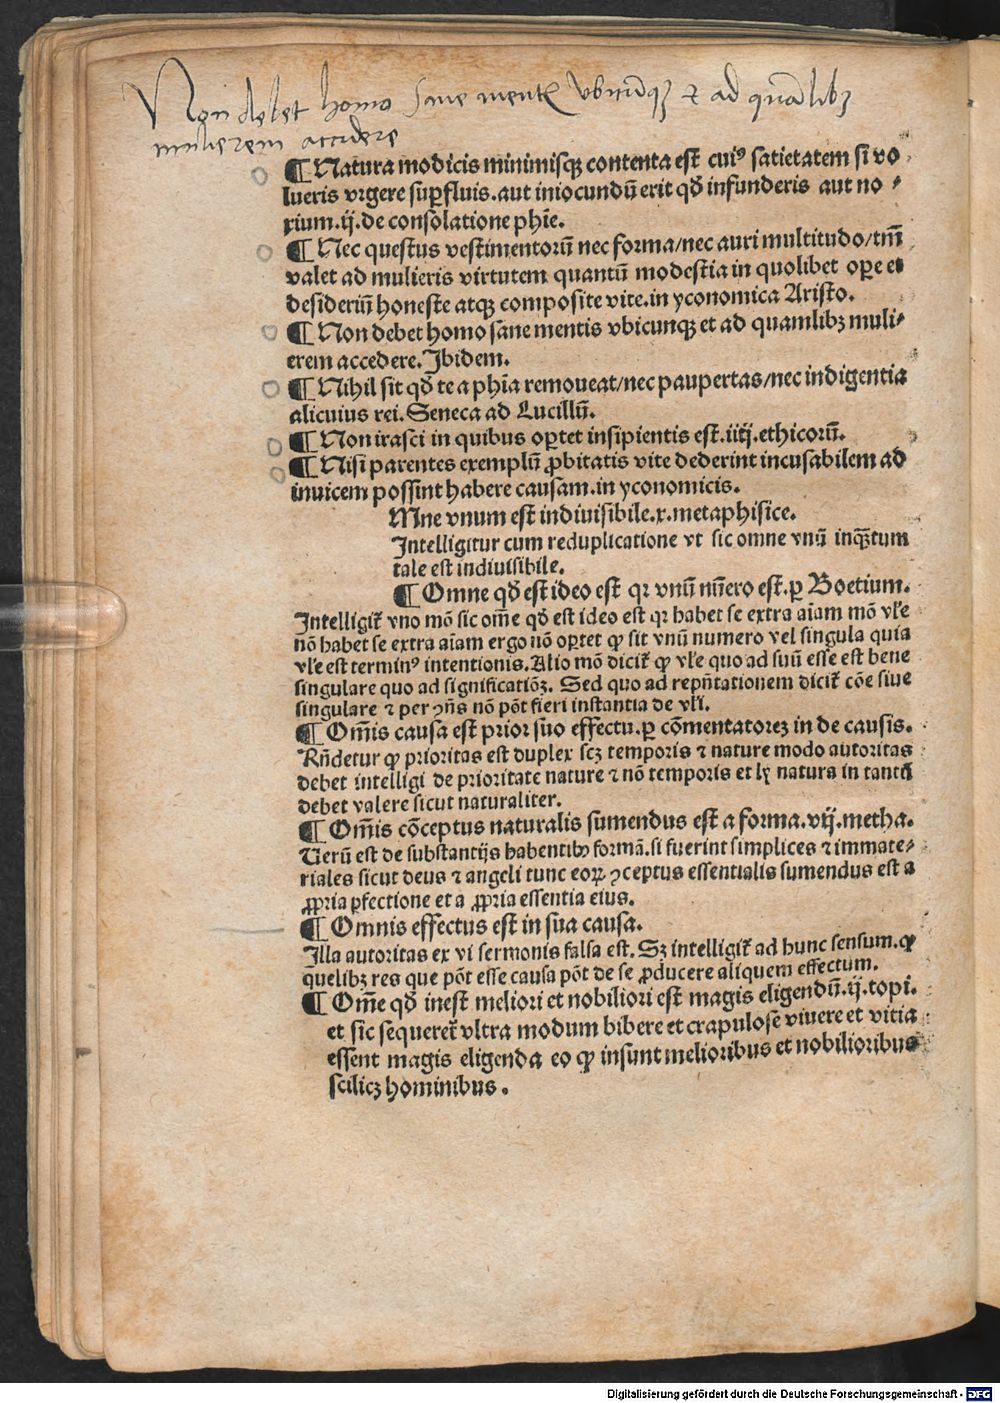 Non debet homo sane mentis vbicunqꝫ et ad quālibꝫ
mulierem accedere
¶ Natura modicis minimisqꝫ contenta est cuiꝰ satietatem si vo
lueris vrgere suꝑfluis. aut iniocundū erit qđ infunderis aut no⸗
xium. ij. de consolatione phīe.
¶ Nec questus vestimentorū nec forma/nec auri multitudo/tm̄
valet ad mulieris virtutem quantū modestia in quolibet oꝑe et
desideriū honeste atqꝫ composite vite. in yconomica Aristo.
¶ Non debet homo sane mentis vbicunqꝫ et ad quamlibꝫ muli⸗
erem accedere. Ibidem.
¶ Nihil sit qđ te a phīa remoueat/nec paupertas/nec indigentia
alicuius rei. Seneca ad Lucillū.
¶ Non irasci in quibus oꝑtet insipientis est. iiij. ethicorū.
¶ Nisi parentes exemplū ꝓbitatis vite dederint incusabilem ad
inuicem possint habere causam. in yconomicis.
Mne vnum est indiuisibile. x. metaphisice.
Intelligitur cum reduplicatione vt sic omne vnū inqꝫtum
tale est indiuisibile.
¶ Omne qđ est ideo est qꝛ vnū nūero est. ꝑ Boetium.
Intelligit᷑ vno mō sic om̄e qđ est ideo est qꝛ habet se extra aīam mō vl̄e
nō habet se extra aīam ergo nō oꝑtet ꝙ sit vnū numero vel singula quia
vl̄e est terminꝰ intentionis. Alio mō dicit᷑ ꝙ vl̄e quo ad suū esse est bene
singulare quo ad significatiōꝫ. Sed quo ad rep̄ntationem dicit᷑ cōe siue
singulare ⁊ per ꝯn̄s nō pōt fieri instantia de vl̄i.
¶ Om̄is causa est prior suo effectu. ꝑ cōmentatoreꝫ in de causis.
Rn̄detur ꝙ prioritas est duplex scꝫ temporis ⁊ nature modo autoritas
debet intelligi de prioritate nature ⁊ nō temporis et lꝫ natura in tantū
debet valere sicut naturaliter.
¶ Om̄is cōceptus naturalis sumendus est a forma. vij. metha.
Uerū est de substantijs habentibꝰ formā. si fuerint simplices ⁊ immate⸗
riales sicut deus ⁊ angeli tunc eoꝝ ꝯceptus essentialis sumendus est a
ꝓpria ꝑfectione et a ꝓpria essentia eius.
¶ Omnis effectus est in sua causa.
Illa autoritas ex vi sermonis falsa est. Sꝫ intelligit᷑ ad hunc sensum. ꝙ
quelibꝫ res que pōt esse causa pōt de se ꝓducere aliquem effectum.
¶ Om̄e qđ inest meliori et nobiliori est magis eligendū. ij. topi.
et sic sequeret᷑ vltra modum bibere et crapulose viuere et vitia
essent magis eligenda eo ꝙ insunt melioribus et nobilioribus
scilicꝫ hominibus.
Digitalisierung gefördert durch die Deutsche Forschungsgemeinschaft - DFG